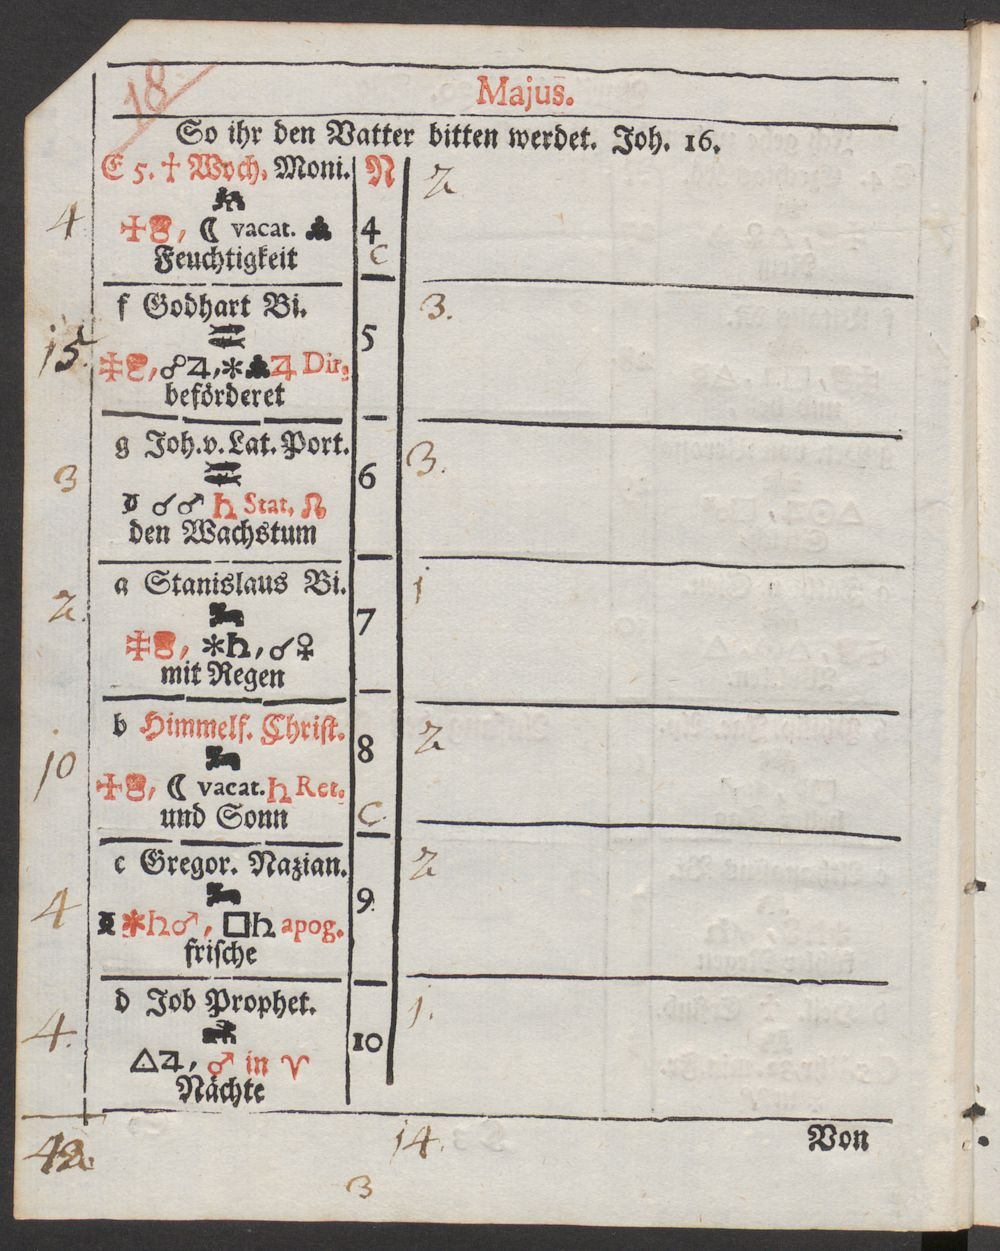 18
Majus.
So ihr den Vatter bitten werdet. Joh. 16.
E 5. ☩ Woch, Moni. N 2
4 ☩, ☾ vacat. 4
Feuchtigkeit C
f Godhart Bi. 3.
15. 5
☩, ☍♃,✱ ♃ Dir,
beförderet
g Joh.v.Lat.Port. 3.
3 6
☌♂ ♄ Stat, ☊
den Wachstum
a Stanislaus Bi. 1
2. 7
☩, ✱♄,☌♀
mit Regen
b Himmelf. Christ. 2
10 8
☩, ☾ vacat.♄ Ret,
und Sonn C
c Gregor. Nazian. 2
4 9
✱♄♂, □♄ apog.
frische
d Job Prophet. 1.
4. 10
△♃, ♂ in ♈
Nächte
42. 14. Von
3